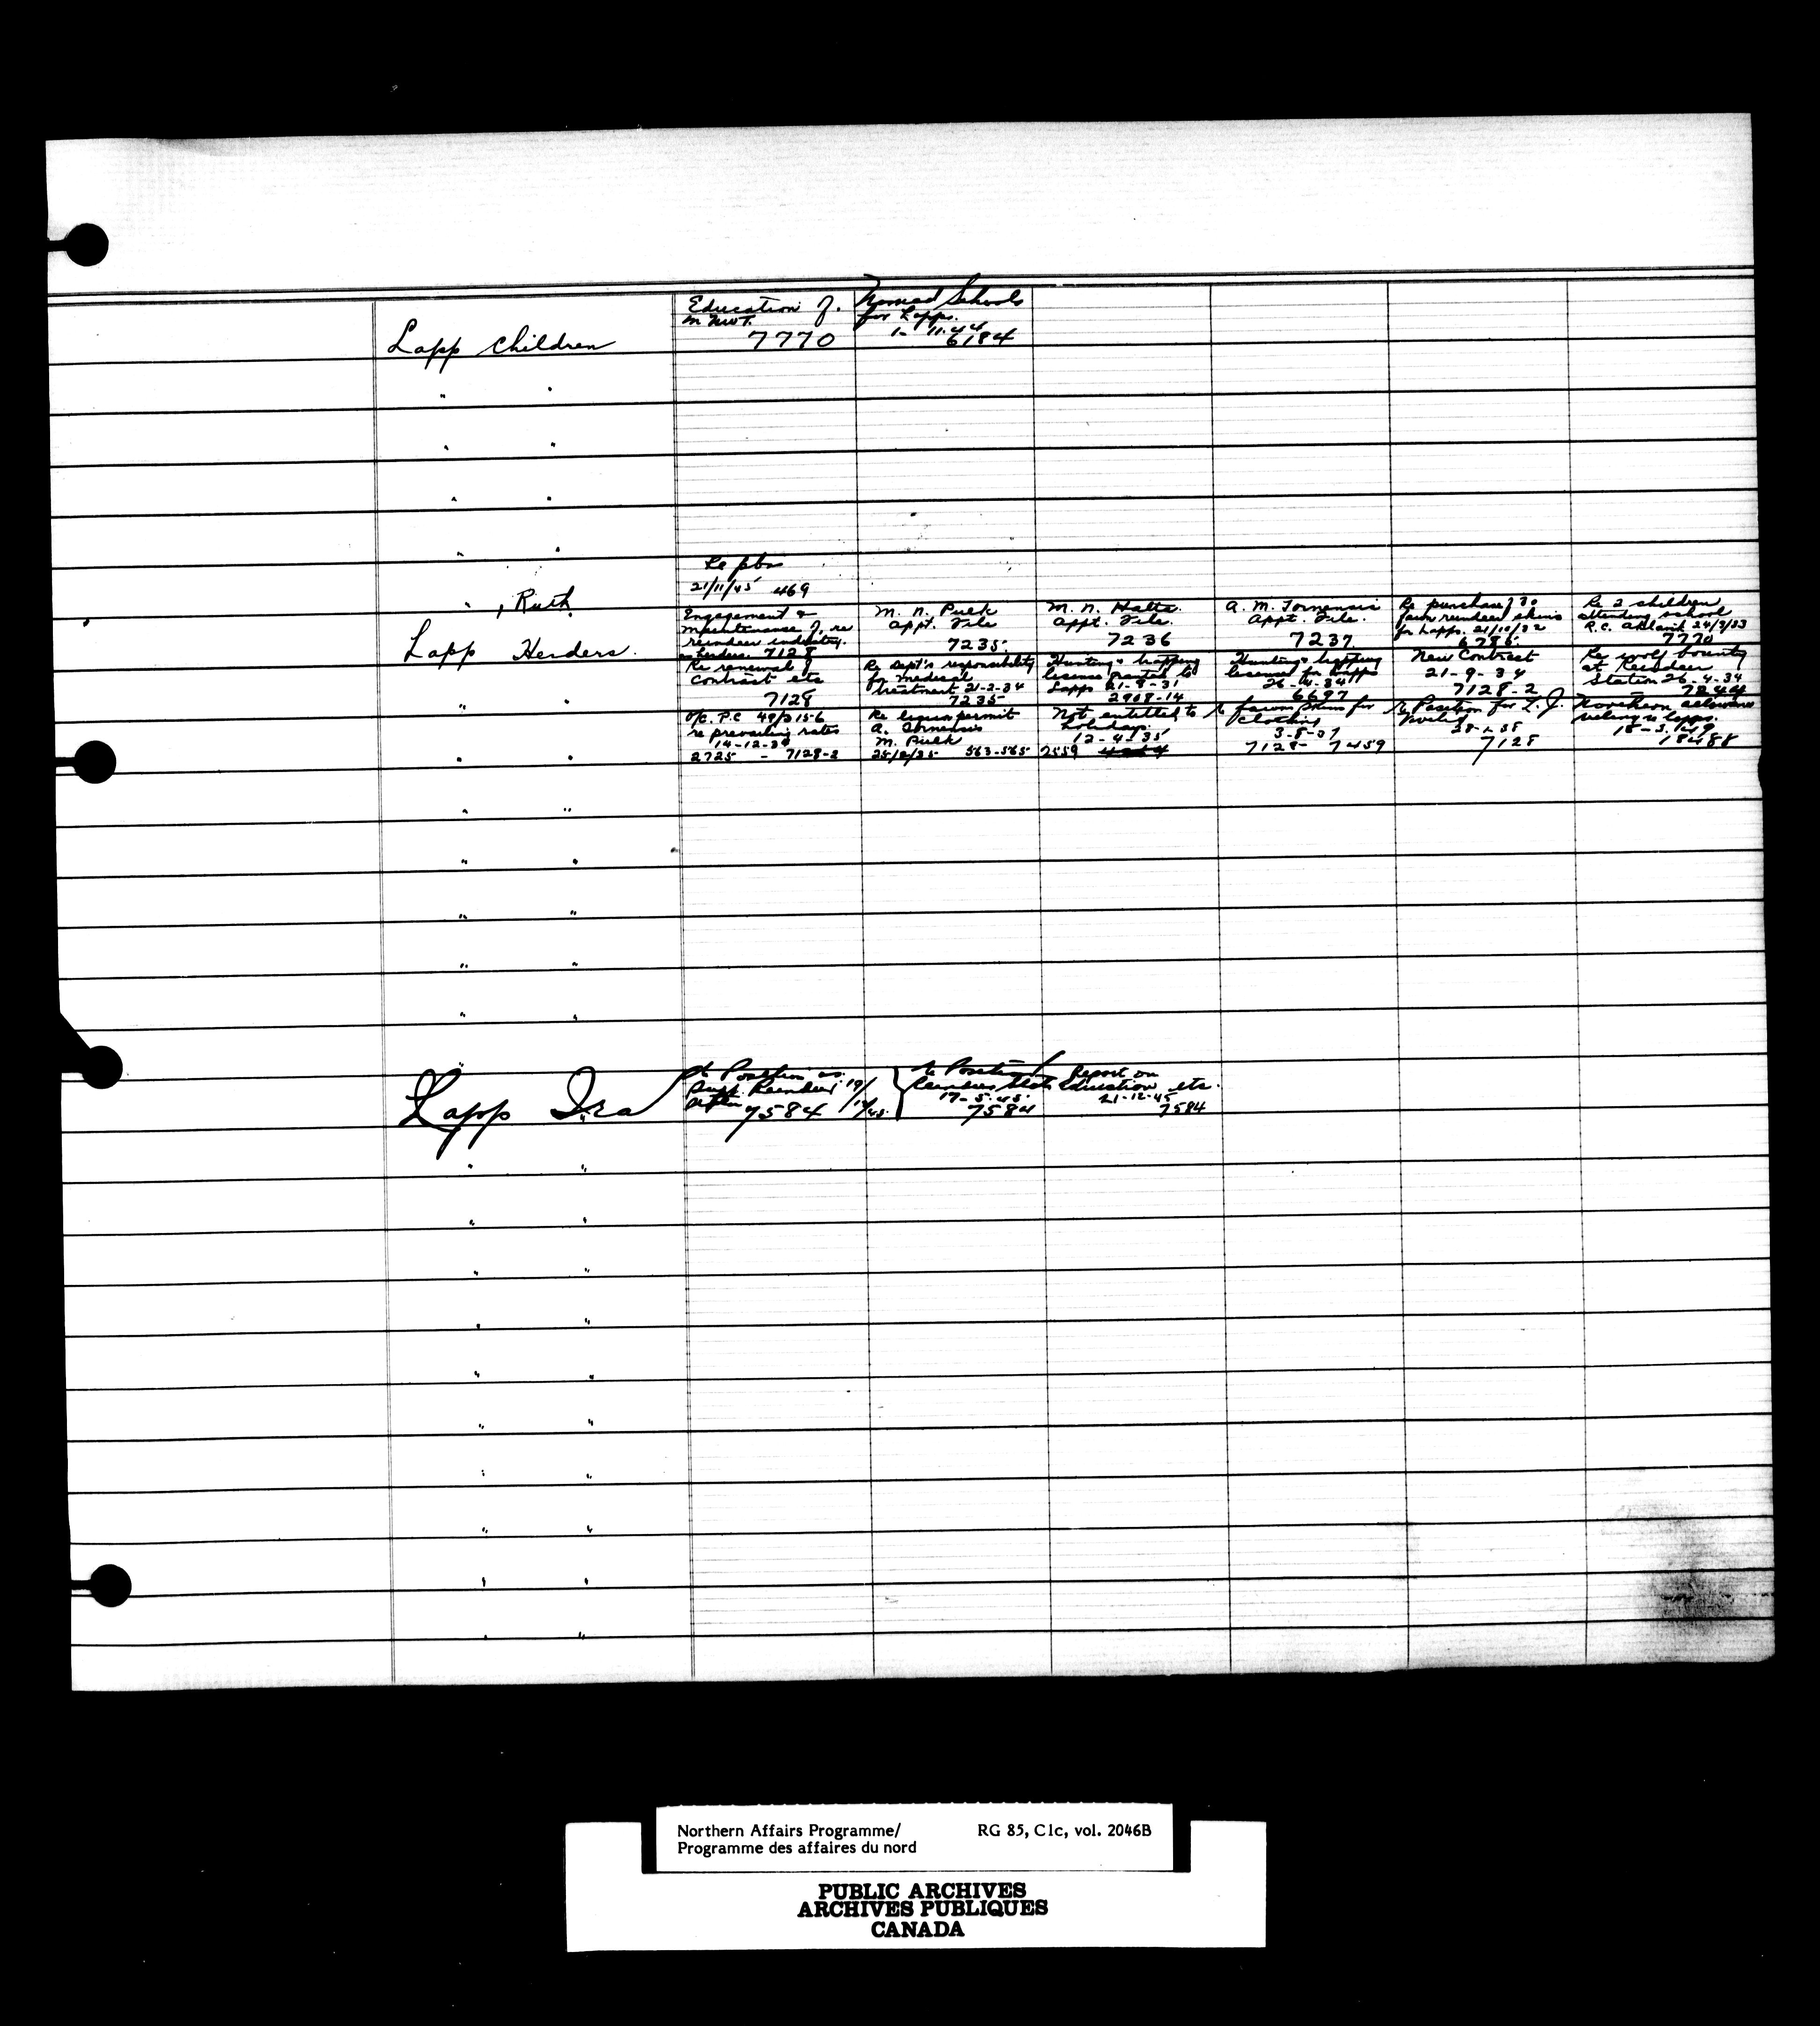 Education of
in NWT.
7770
Nomad Schools
for Lapps.
1-11-44
6184
Lapp Children
" "
" "
" "
" "
21/11/45 469
" , Ruth
Lapp Herders.
Engagement &
maintenance of, re
reindeer industry.
as herders. 7128
M. N. Pulk
Appt. File
7235.
M. N. Hatta.
Appt. File.
7236
A. M. Tornensis
Appt. File.
7237.
Re purchase of 30
fawn reindeer skins
for Lapps. 21/10/32
6786.
Re 2 children
attending school
R.C. Aklavik
7770
" "
Re renewal of
contract etc
7128
Re Dept's responsibility
for medical
treatment 21-2-34
7235
Hunting & trapping
license granted to
Lapps 21-8-31
2908-14
Hunting & trapping
licenses for Lapps
26-4-34
6697
New Contract
21-9-34
7128-2
Re wolf bounty
at Reindeer
Station 26-4-34
7244
" "
O/C. P.C. 49/3156
re prevailing rates
14-12-34
2725 - 7128-2
Re liquor permit
A. Tornensis
M. Pulk
563-565
Not entitled to
holidays.
12-4-35
2559
Re fawn skins for
clothing
3-8-37
7128- 7459
Re Position for
7128
Northern allowance
Lapps.
18488
" "
" "
" "
" "
" "
Lapp Ira
Re Position as
Supt. Reindeer
7584
Re Position
Reindeer Statn
17-5-45.
7584
Report on
Education etc.
21-12-45
7584
" "
" "
" "
" "
" "
" "
" "
" "
" "
" "
Northern Affairs Programme/
Programme des affaires du nord
RG 85, C1c, vol. 2046B
PUBLIC ARCHIVES
ARCHIVES PUBLIQUES
CANADA